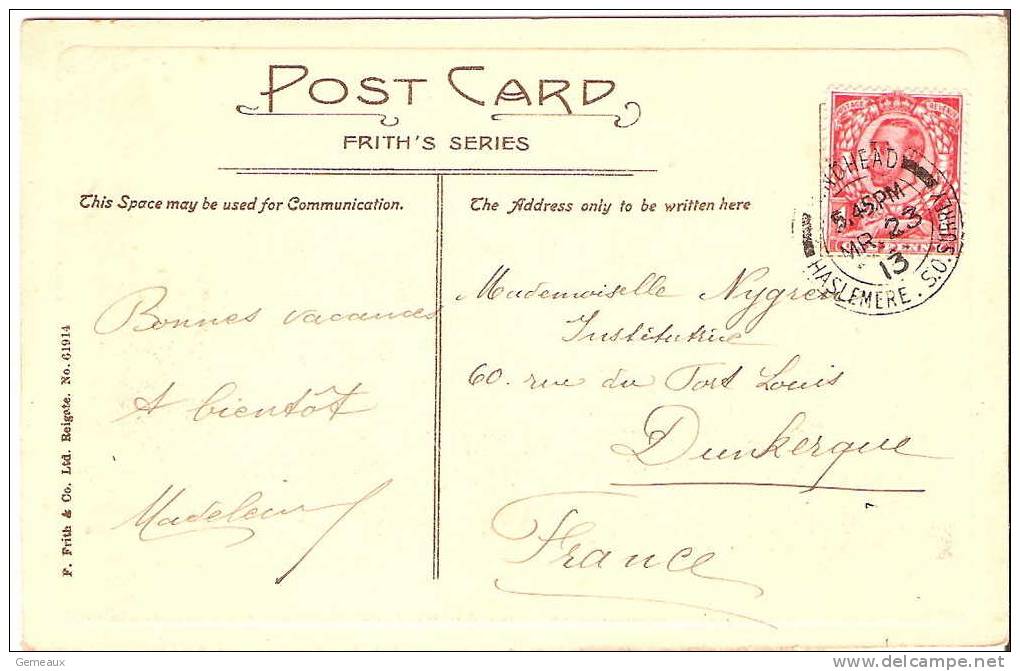 POST CARD
FRITH'S SERIES
This Space may be used for Communication.
The Address only to be written here
POSTAGE REVENUE
HINDHEAD
5.45.PM
MR 23
13
HASLEMERE. S.O. SURREY
Bonnes vacances
A bientôt
Madeleine
Mademoiselle Nygren
Institutrice
60. rue du Fort Louis
Dunkerque
France
F. Frith & Co. Ltd. Reigate. No. 61914
Gemeaux
delcampe.net